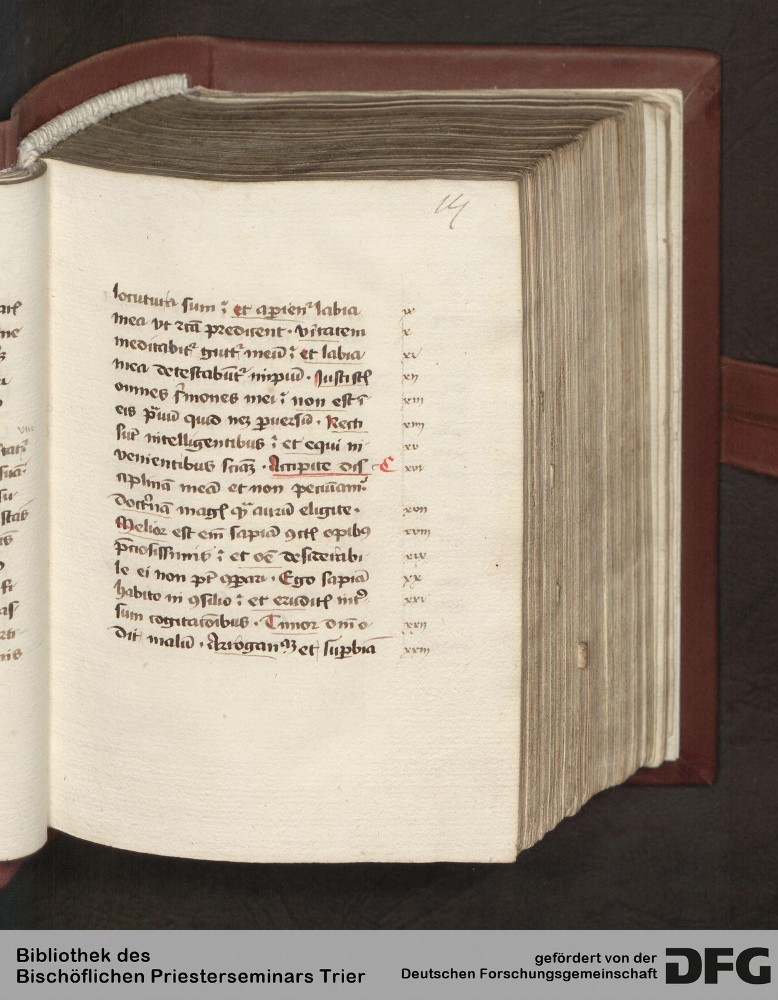 14
locutura sum : et aperient~ labia
mea ut rcā predicent · Vītatem
meditabit~ gutt~ meū : et labia
mea detestabūt~ impiū · Justi st̄
omnes s̄mones mei : non est ī
eis p̄uū quid neq3 p̱uersū · Recti
sūt intelligentibus : et equi in
venientibus sciā3 · Accipite dis
ciplinā meā et non pecuniam :
Doct'nā magꝭ q̄ aurū eligite ·
Melior est em̄ sapiā cūctꝭ opibꝯ
p̄ciosissimis : et oē desiderabi
le ei non pt̄ ꝯpari · Ego sapiā
habito in ꝯsilio : et eruditꝭ int~
sum cogitacōibus · Timor dn̄i o
dit malū · Arrogan et sup̱biā
x
xi
xii
xiii
xiiii
xv
xvi
xvii
xviii
xix
xx
xxi
xxii
xxiii
Bibliothek des
Bischöflichen Priesterseminars Trier
gefördert von der
Deutschen Forschungsgemeinschaft
DFG